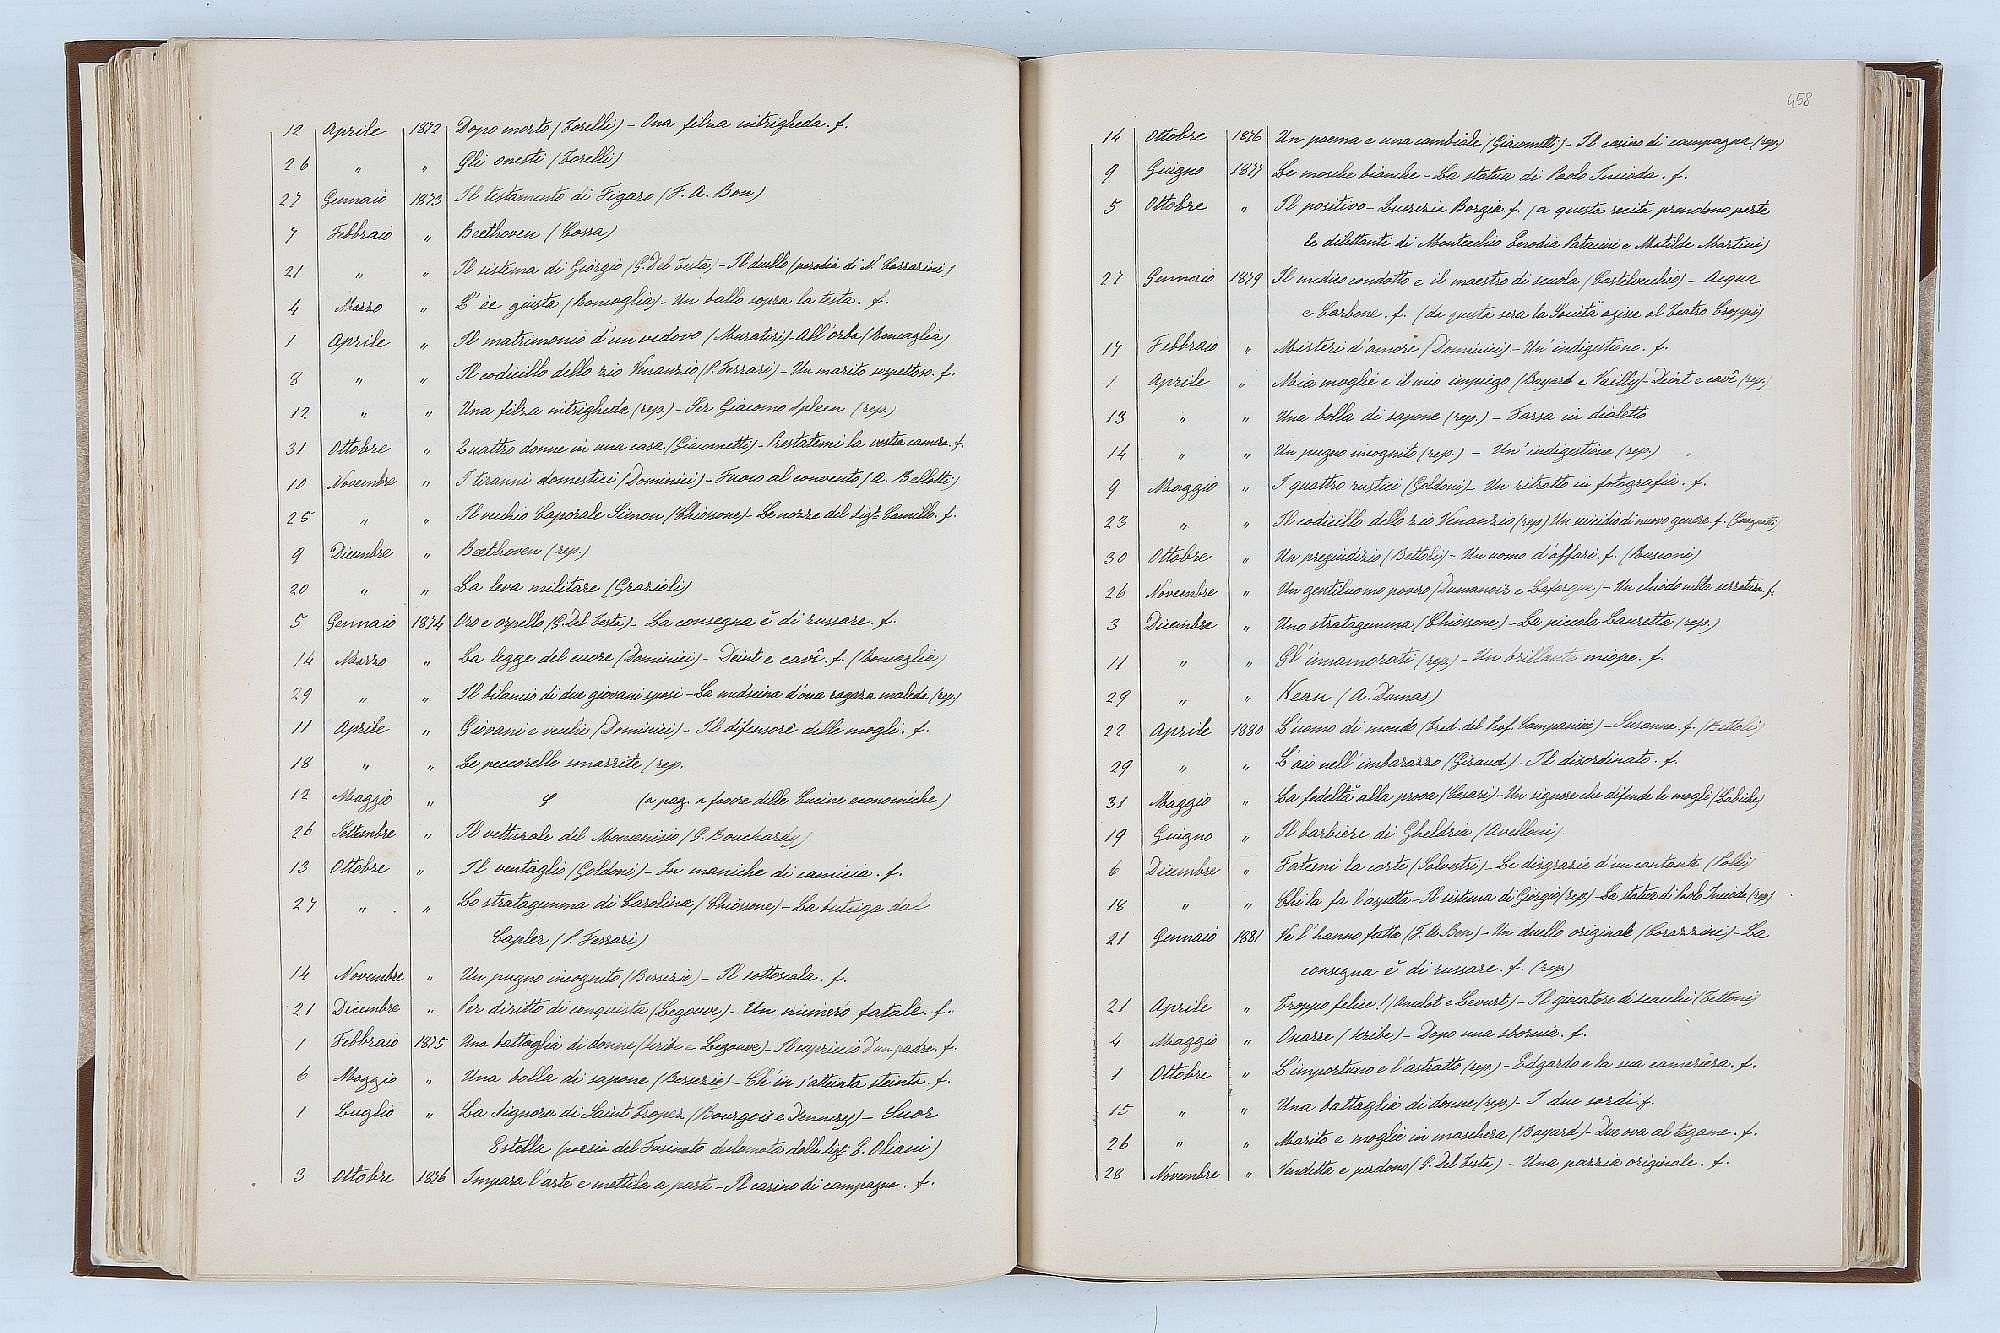 12 Aprile 1872 Dopo morto (Torelli) - Ona filza intrigheda. f.
26 " " Gli onesti (Torelli)
27 Gennaio 1873 Il testamento di Figaro (F. A. Bon)
7 Febbraio " Beethoven (Cossa)
21 " " Il sistema di Giorgio (G. Del Testa) - Il duello (parodia di N. Corrazini)
4 Marzo " L'è giusta (Roncaglia) - Un ballo sopra la testa. f.
1 Aprile " Il matrimonio d'un vedovo (Muratori) - All'orba (Roncaglia)
8 " " Il codicillo dello zio Venanzio (P. Ferrari) - Un marito sospettoso. f.
12 " " Una filza intrighede (rep.) - Ser Giacomo Spleen (rep.)
31 Ottobre " Quattro donne in una casa (Giacometti) - Prestatemi la vostra camera. f.
10 Novembre " I tiranni domestici (Dominici) - Fuoco al convento (A. Bellotti)
25 " " Il vecchio Caporale Simon (Chiossone) - Le nozze del Sigr. Camillo. f.
9 Dicembre " Beethoven (rep.)
20 " " La leva militare (Grazioli)
5 Gennaio 1874 Oro e orpello (G. Del Testa) - La consegna è di russare. f.
14 Marzo " La legge del cuore (Dominici) - Deint e cavê. f. (Roncaglia)
29 " " Il bilancio di due giovani sposi - La medicina d'ona ragaza maleda (rep.)
11 Aprile " Giovani e vecchi (Dominici) - Il difensore delle mogli. f.
18 " " Le peccorelle smarrite (rep.
12 Maggio " (a pag. a favore delle Cucine economiche)
26 Settembre " Il vetturale del Moncenisio (G. Bouchardy)
13 Ottobre " Il ventaglio (Goldoni) - In maniche di camicia. f.
27 " " Lo stratagemma di Carolina (Chiossone) - La buteiga dal
Capler (P. Ferrari)
14 Novembre " Un pugno incognito (Bersezio) - Il sottoscala. f.
21 Dicembre " Per diritto di conquista (Legouve) - Un numero fatale. f.
1 Febbraio 1875 Una battaglia di donne (Scribe e Legouve) - Il capriccio d'un padre. f.
6 Maggio " Una bolla di sapone (Bersezio) - Ch'in s'attinta steinta. f.
1 Luglio " La Signora di Saint Tropez (Bourgois e Dennery) - Suor
Estella (poesia del Fusinato declamata dalla Sigra E. Oliani)
3 Ottobre 1876 Impara l'arte e mettila a parte - Il casino di campagna. f.
458
14 Ottobre 1876 Un poema e una cambiale (Giacometti) - Il casino di campagna (rep.)
9 Giugno 1877 Le mosche bianche - La statua di Paolo Incioda. f.
5 Ottobre " Il positivo - Lucrezia Borgia. f. (a questa recita prendono parte
le dilettanti di Montecchio Erodia Patacini e Matilde Martini)
27 Gennaio 1879 Il medico condotto e il maestro di scuola (Castelvecchio) - Acqua
e Carbone. f. (da questa sera la Società agisce al Teatro Croppi)
17 Febbraio " Misteri d'amore (Dominici) - Un'indigestione. f.
1 Aprile " Mia moglie e il mio impiego (Bayard e Vailly) - Deint e cavê (rep.)
13 " " Una bolla di sapone (rep.) - Farsa in dialetto
14 " " Un pugno incognito (rep.) - Un'indigestione (rep.)
9 Maggio " I quattro rustici (Goldoni) - Un ritratto in fotografia. f.
23 " " Il codicillo dello zio Venanzio (rep.) Un suicidio di nuovo genere. f.
30 Ottobre " Un pregiudizio (Bettoli) - Un uomo d'affari. f. (Busioni)
26 Novembre " Un gentiluomo povero (Dumanoir e Lafargue) - Un chiodo nella serratura. f.
3 Dicembre " Uno stratagemma (Chiossone) - La piccola Lauretta (rep.)
11 " " Gl'innamorati (rep.) - Un brillante miope. f.
29 " " Kean (A. Dumas)
22 Aprile 1880 L'uomo di mondo (Trad. del Prof. Campanini) - Susanna. f. (Bettoli)
29 " " L'aio nell'imbarazzo (Giraud) - Il disordinato. f.
31 Maggio " La fedeltà alla prova (Cesari) - Un signore che difende la moglie (Labiche)
19 Giugno " Il barbiere di Gheldria (Avelloni)
6 Dicembre " Fatemi la corte (Salvestri) - Le disgrazie d'un cantante (Polli)
18 " " Chi la fa l'aspetta - Il sistema di Giorgio (rep.) - La statua di Paolo Incioda (rep.)
21 Gennaio 1881 Ve l'hanno fatta (F. A. Bon) - Un duello originale (Corazzini) - La
consegna è di russare. f. (rep.)
21 Aprile " Troppo felice! (Ancelot e Lecourt) - Il giocatore di scacchi (Tettoni)
4 Maggio " Oscarre (Scribe) - Dopo una sbornia. f.
1 Ottobre " L'importuno e l'astratto (rep.) - Edgardo e la sua cameriera. f.
15 " " Una battaglia di donne (rep.) - I due sordi f.
26 " " Marito e moglie in maschera (Bayard) - Due ova al tegame. f.
28 Novembre " Vendetta e perdono (G. Del Testa) - Una pazzia originale. f.